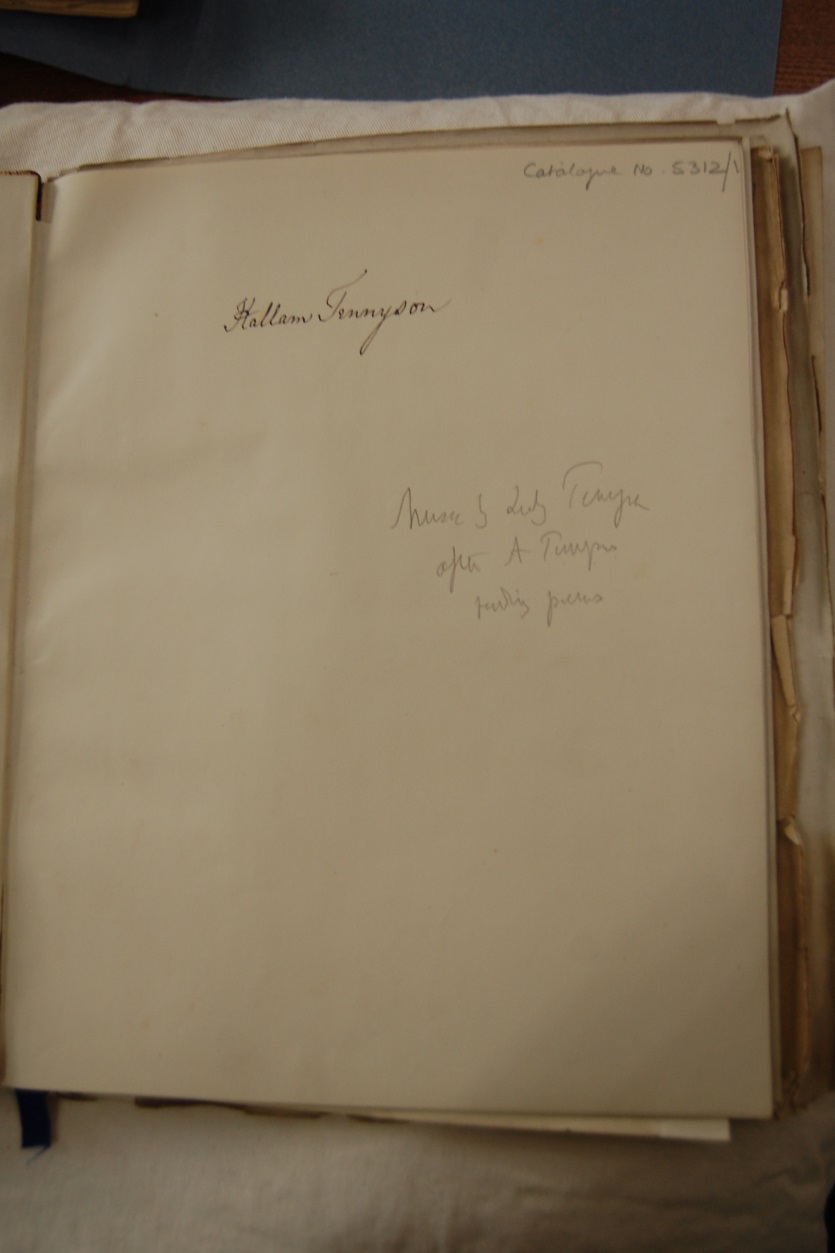 Catalogue No. 5312/1
Hallam Tennyson
Music by Lady Tennyson
after A Tennyson
reading poems